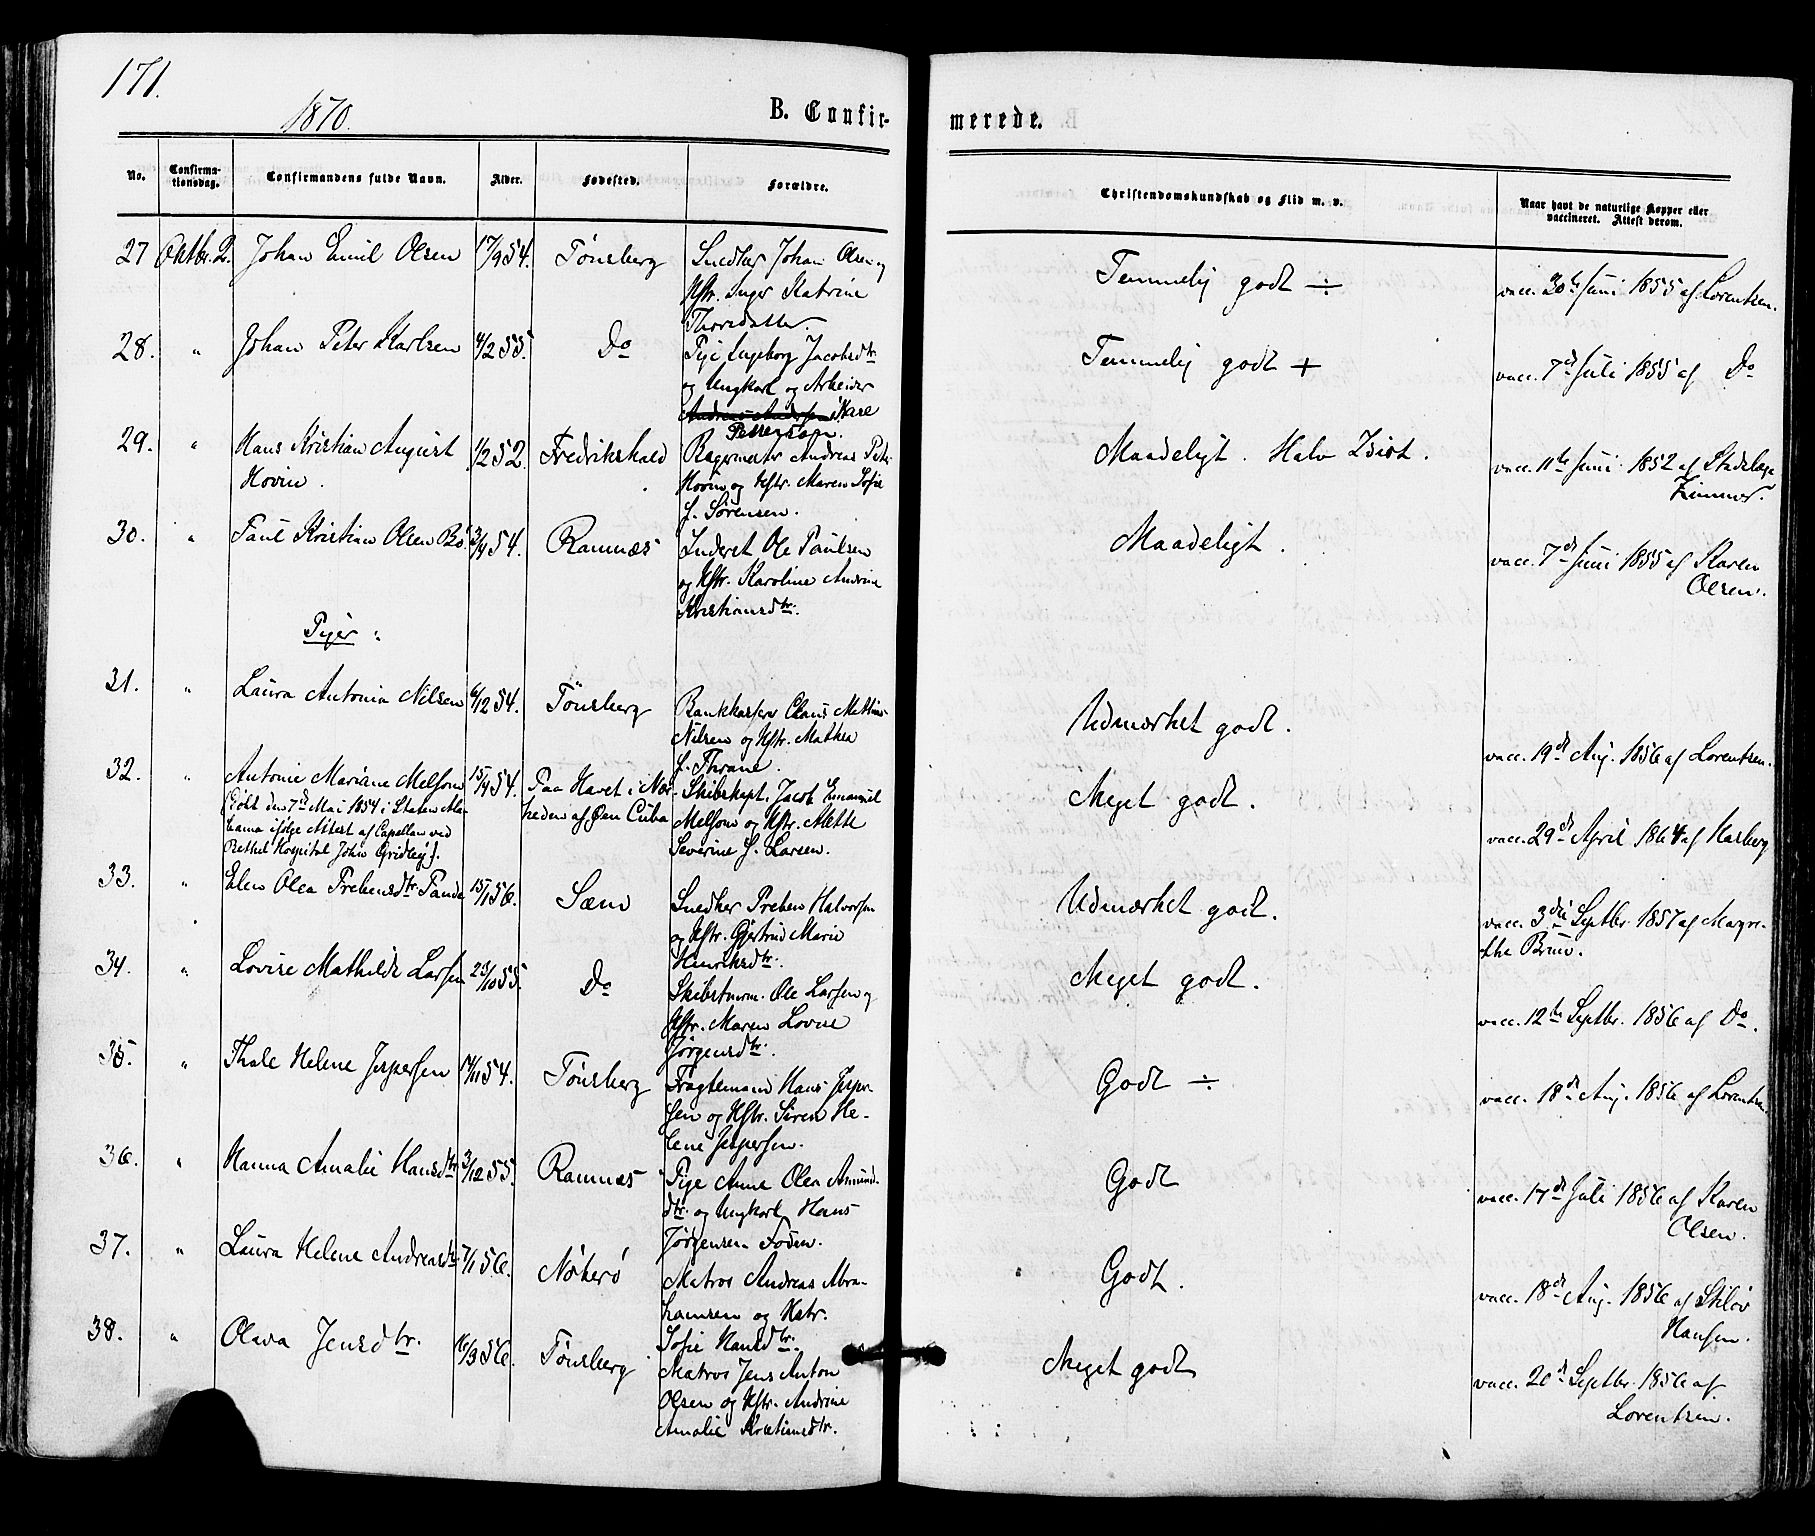 171.
1870.
B. Confir-
merede.
No.
Confirma-
tionsdag.
Confirmandens fulde Navn.
Alder.
Fødested.
Forældre.
Christendomskundskab og Flid m. v.
Naar havt de naturlige Kopper eller
vaccineret. Attest derom.
27 Oktbr. 2. Johan Emil Olsen 17/9 54. Tönsberg Snedker Johan Olsen og
Hstr. Inger Katrine
Thorsdatter.
Temmelig godt ÷
vacc. 30te Juni 1855 af Lorentzen.
28. " Johan Peter Karlsen 4/2 55. Do Pige Ingeborg Jacobsdtr
og Ungkarl og Arbeider
Andreas Andersen Kare
Pettersen.
Temmelig godt +
vacc. 7de Juli 1855 af Do
29. " Hans Kristian August 1/2 52. Fredrikshald Andreas Peter
Hovin.
Hovin og Hstr. Maren Sofie
f. Sörensen.
Maadeligt. Halv Idiot.
vacc. 11te Juni 1852 af Stadslæge
30. " Paul Kristian Olsen Bö. 3/4 54. Ramnæs Inderst Ole Paulsen
og Hstr. Karoline Andrine
Kristiansdtr.
Maadeligt.
vacc. 7de Juni 1855 af Karen
Olsen.
Piger:
31. " Laura Antonia Nilsen 6/12 54. Tönsberg Bankkasserer Claus Mathias
Nilsen og Hstr. Mathea
f. Thrane.
Udmærket godt.
vacc. 19de Aug. 1856 af Lorentzen.
32. " Antonie Mariane Melsom 15/4 54. Paa Havet i Nær- Skibskapt. Jacob Emanuel
(Döbt den 7de Mai 1854 i Staten Ala-
heden af Öen Cuba Melsom og Hstr. Mette
bama ifølge Attest af Capellan ved
Severine f. Larsen.
Bethel Hospital John Gridley).
Meget godt.
vacc. 29de April 1864 af Harberg
33. " Elen Olea Prebensdtr Pande 15/1 56. Sæm Snedker Preben Halvorsen
og Hstr. Gjertrud Marie
Henriksdtr.
Udmærket godt.
vacc. 3die Septbr. 1857 af Magre-
the Bruu.
34. " Lovise Mathilde Larsen 25/10 55. Do Skibstømm. Ole Larsen og
Hstr. Maren Lovise
Jörgensdtr.
Meget godt.
vacc. 12te Septbr. 1856 af Do.
35. " Thale Helene Jespersen 14/11 54. Tönsberg Fragtemand Hans Jesper-
sen og Hstr. Siren He-
lene Jespersen.
Godt ÷
vacc. 18de Aug. 1856 af Lorentzen.
36. " Hanna Amalie Hansdtr 3/12 55. Ramnæs Pige Anne Olea Amund-
dtr. og Ungkarl Hans
Jörgensen Foden.
Godt
vacc. 17de Juli 1856 af Karen
Olsen.
37. " Laura Helene Andreasdtr 7/1 56. Nöterö Matros Andreas Abra-
hamsen og Hstr.
Sofie Hansdtr.
Godt.
vacc. 18de Aug. 1856 af
Hansen.
38. " Olava Jensdtr. 16/3 56. Tönsberg Matros Jens Anton
Olsen og Hstr. Andrine
Amalie Kristiansdtr.
Meget godt
vacc. 20de Septbr. 1856 af
Lorentzen.